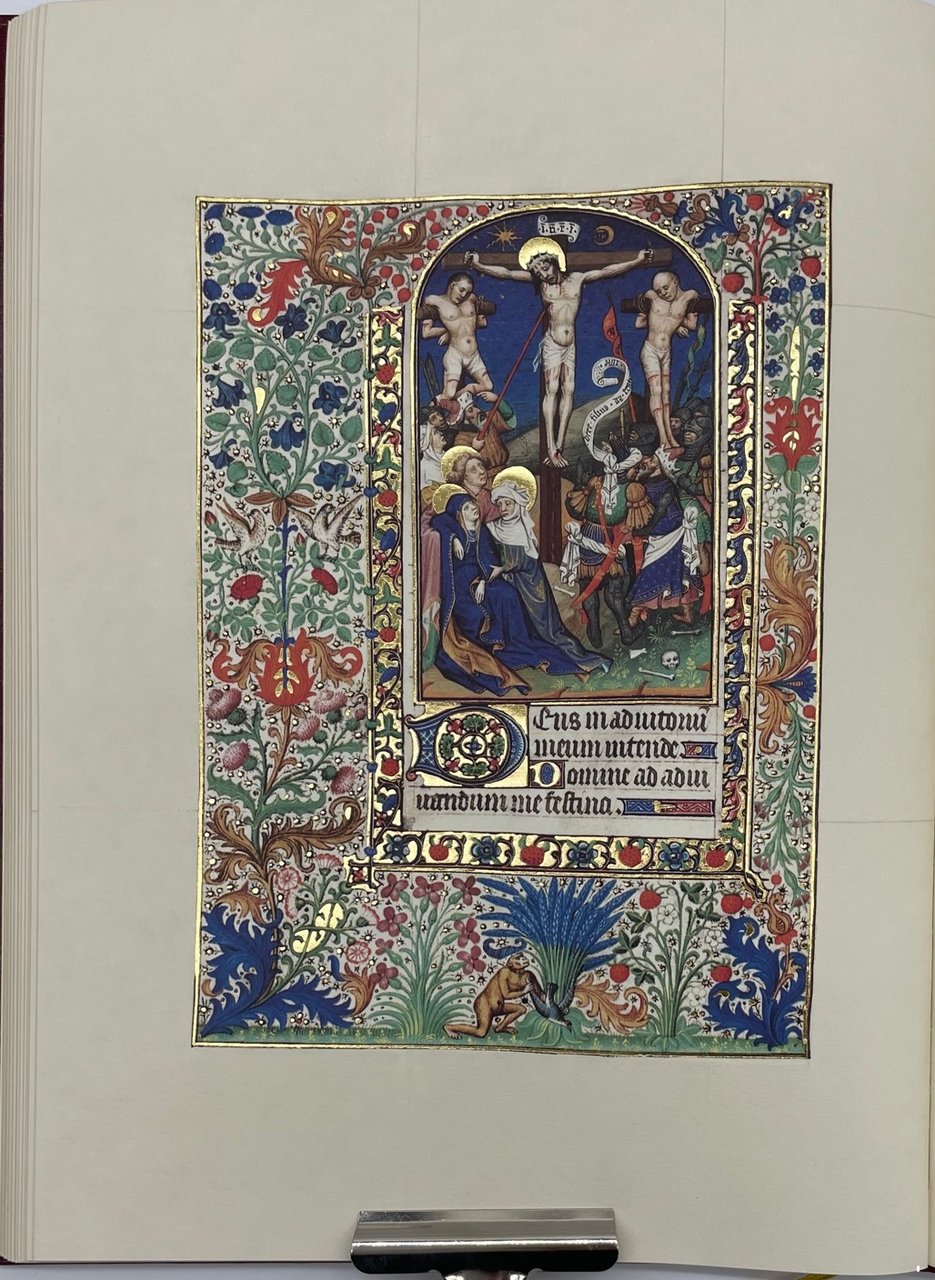 I.N.R.I.
vere filius dei
Deus in adiutoriū
meum intende
Domine ad adiu
uandum me festina.